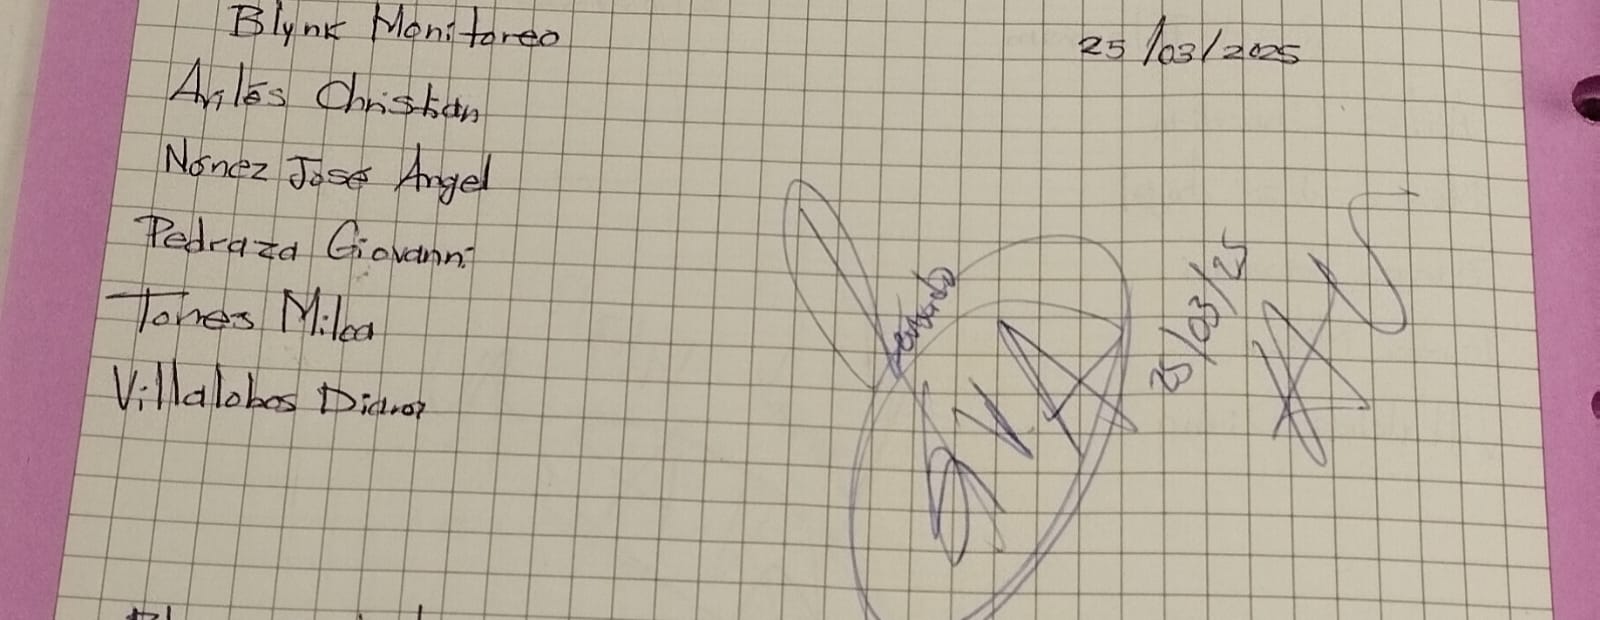 Blynk Monitoreo
25/03/2025
Avilés Christian
Núñez José Angel
Pedraza Giovanni
Torres Milca
Villalobos
25/03/25